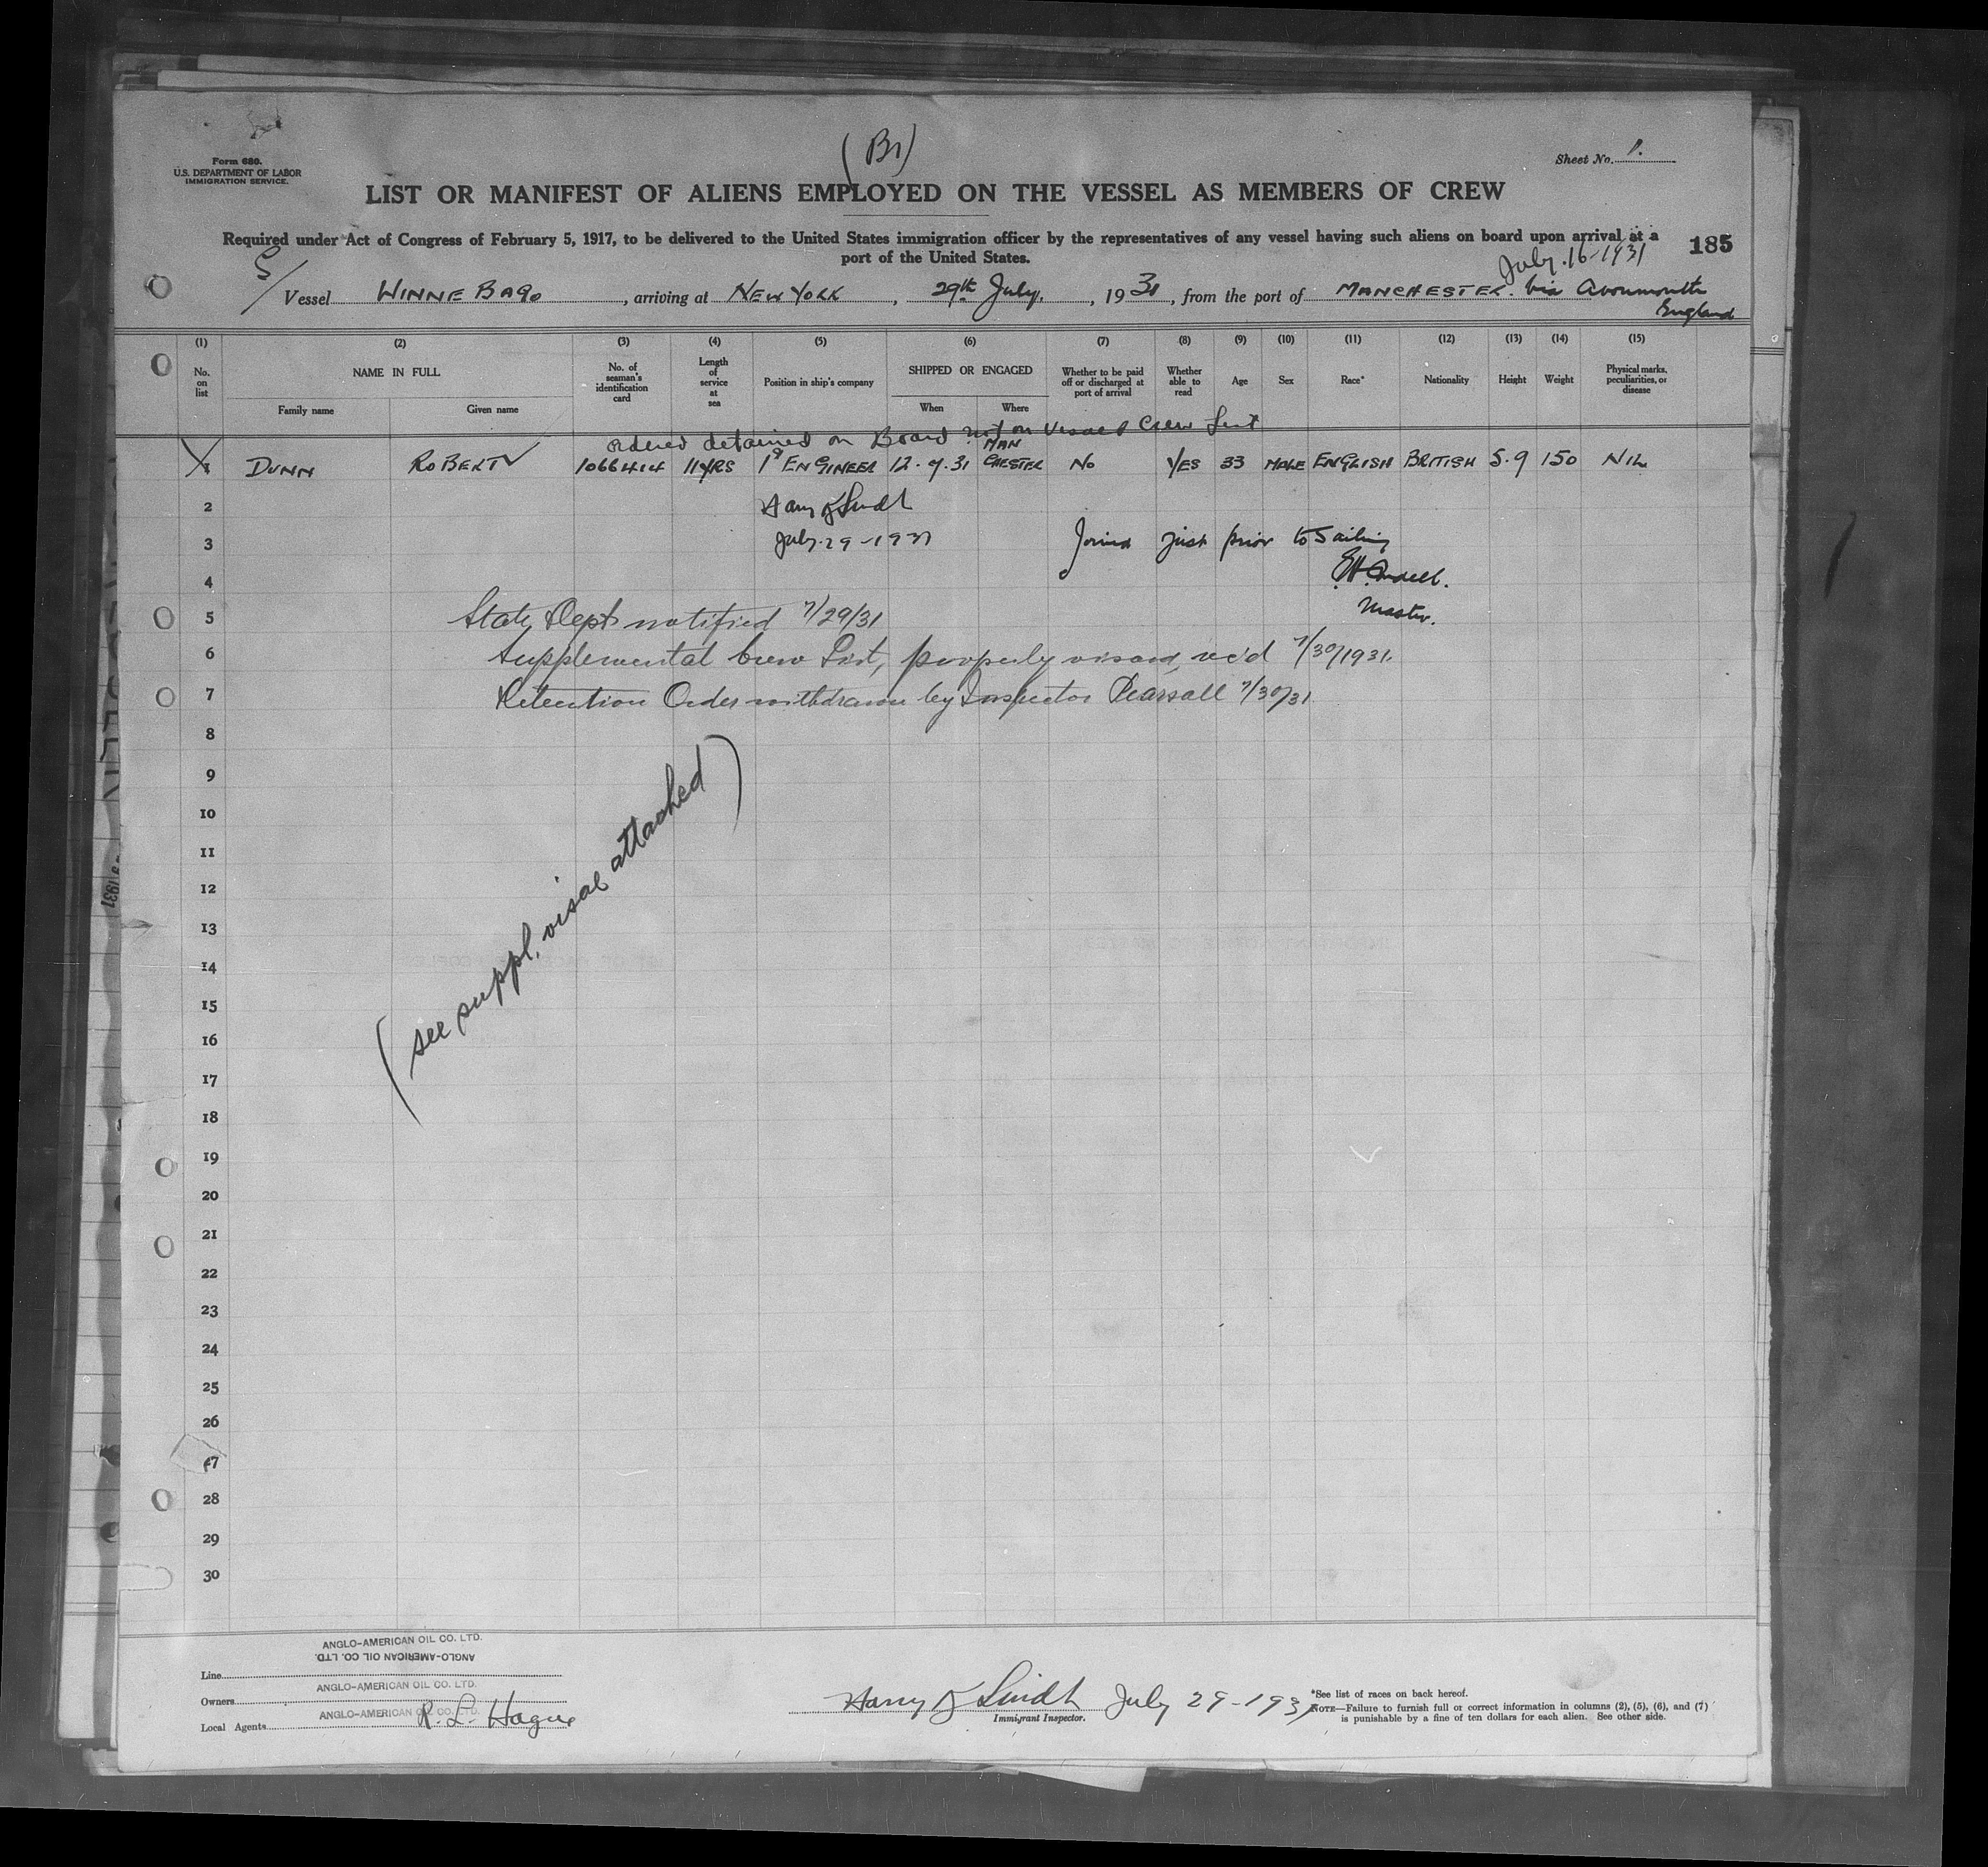 (B1)
Form 680.
U.S. DEPARTMENT OF LABOR
IMMIGRATION SERVICE.
Sheet No. 1.
LIST OR MANIFEST OF ALIENS EMPLOYED ON THE VESSEL AS MEMBERS OF CREW
Required under Act of Congress of February 5, 1917, to be delivered to the United States immigration officer by the representatives of any vessel having such aliens on board upon arrival at a
port of the United States.
185
July. 16-1931
S/ Vessel WINNEBAGO, arriving at NEW YORK, 29th July, 1931, from the port of MANCHESTER. via Avonmouth
England
(1) (2) (3) (4) (5) (6) (7) (8) (9) (10) (11) (12) (13) (14) (15)
No. on list NAME IN FULL No. of seaman's identification card Length of service at sea Position in ship's company SHIPPED OR ENGAGED Whether to be paid off or discharged at port of arrival Whether able to read Age Sex Race* Nationality Height Weight Physical marks, peculiarities, or disease
Family name Given name When Where
ordered detained on Board not on Visaed Crew List
1 DUNN ROBERT 1066414 11YRS 1st ENGINEER 12.7.31 MANCHESTER NO YES 33 MALE ENGLISH BRITISH 5.9 150 NIL
2 Harry Lindt
3 July-29-1931 Joined just prior to Sailing
4
Master.
5 State Dept notified 7/29/31
6 Supplemental Crew List, properly visaed, rec'd 7/30/1931.
7 Detention Order withdrawn by Inspector Pearsall 7/30/31
8
9
10
11
12
13
14
15
16
17
18
19
20
21
22
23
24
25
26
27
28
29
30
(see suppl. visae attached)
ANGLO-AMERICAN OIL CO. LTD.
ANGLO-AMERICAN OIL CO. LTD.
Line
Owners ANGLO-AMERICAN OIL CO. LTD.
Local Agents ANGLO-AMERICAN OIL CO. LTD. R. L. Hague
Harry Lindt July 29-1931
Immigrant Inspector.
*See list of races on back hereof.
NOTE—Failure to furnish full or correct information in columns (2), (5), (6), and (7)
is punishable by a fine of ten dollars for each alien. See other side.